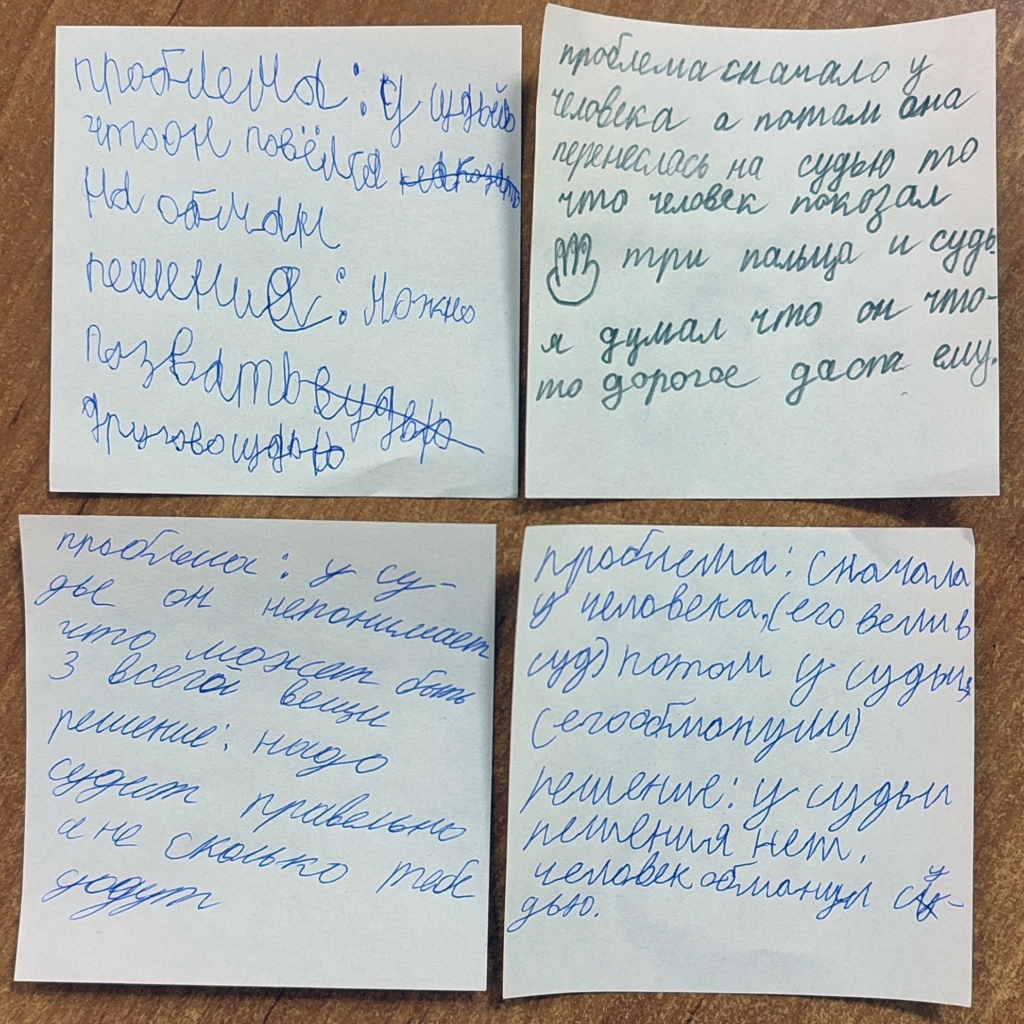 проблема: у судьи
что он повёлся
на обман
решения: можно
позвать
другово судью
проблема сначало у
человека а потом она
перенеслась на судью то
что человек показал
три пальца и судь
я думал что он что-
то дорогое даста ему.
проблема: у су-
дье он непонимает
что может быть
3 всего вещи
решение: надо
судит правельно
а не сколько тебе
дадут
проблема: сначала
у человека, (его вели в
суд) потом у судьи,
(его обманули)
решение: у судьи
решения нет.
человек обманул су-
дью.